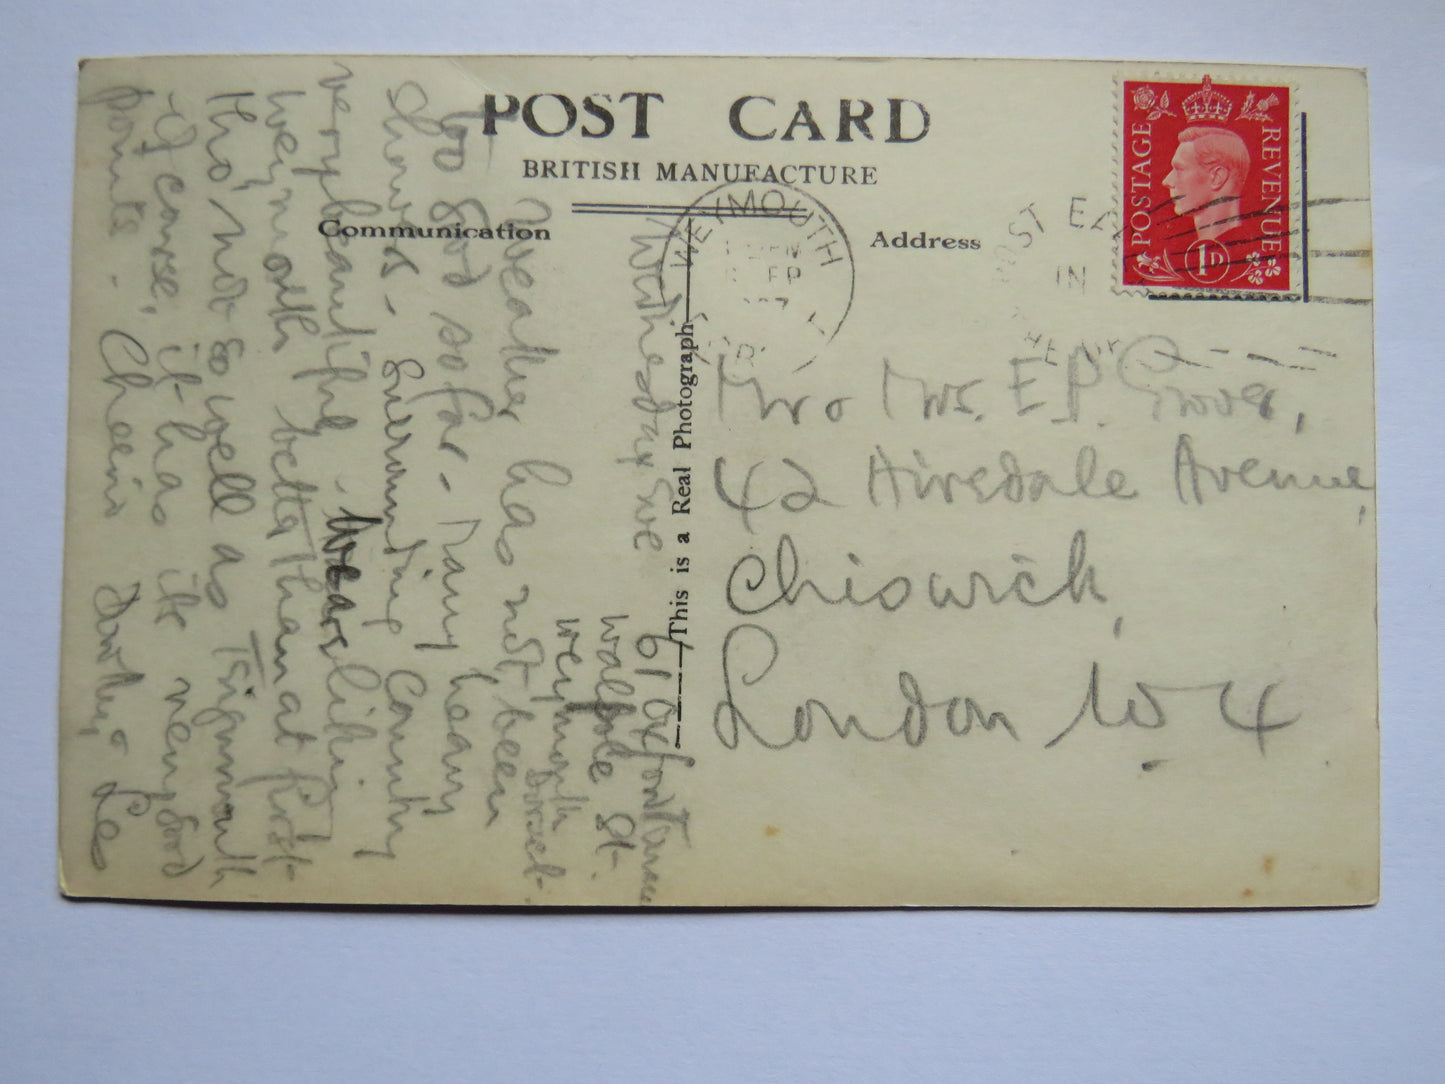 POST CARD
BRITISH MANUFACTURE
Communication
Address
This is a Real Photograph
WEYMOUTH
POST EA
IN
THE
POSTAGE
REVENUE
1D
Mr & Mrs. E.P. Grover,
42 Airedale Avenue,
Chiswick,
London W 4
61 Oxford Terrace
Walpole St.
Weymouth
Dorset.
Wednesday Eve
Weather has not been
too good so far - Many heavy
showers - Surrounding country
very beautiful - We are liking
Weymouth better than at first
tho' not so well as Teignmouth
- Of course, it has its very good
points - Cheerio Dorothy & Les